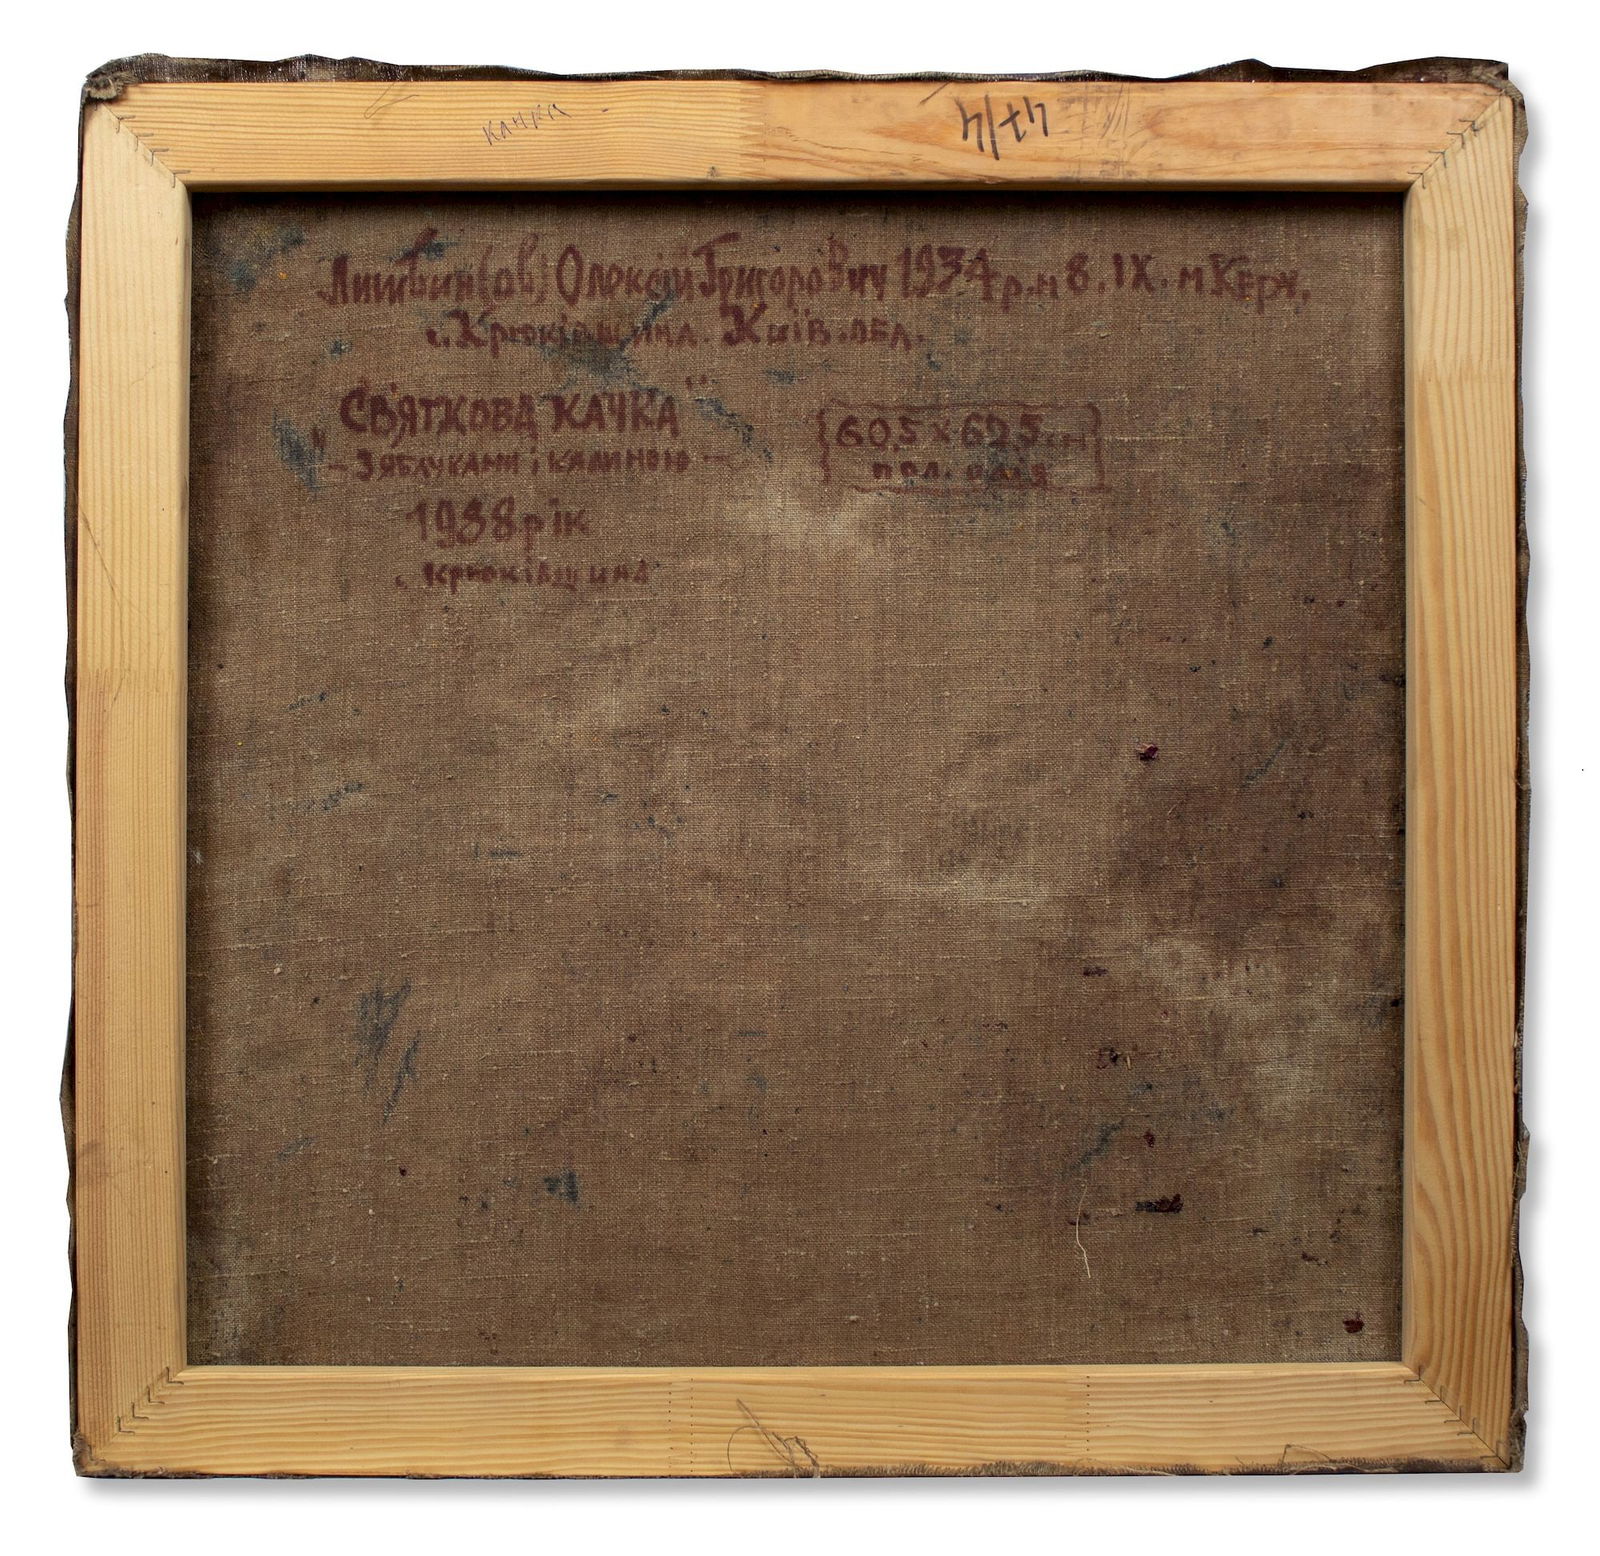 качка
47/4
Литвин(ов) Олексій Григорович 1934 р.н 8.IX. м Керч,
с. Крюківщина. Київ. обл.
"СВЯТКОВА КАЧКА"
- З яблуками і калиною -
1988 рік
с. Крюківщина
60,5 x 62,5 см
пол. олія